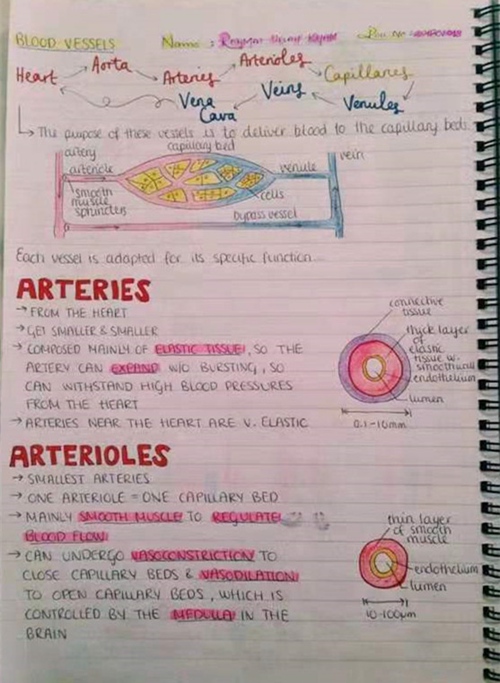 BLOOD VESSELS Name :
Heart Aorta Arteries Arterioles Capillaries
Vena Cava Veins Venules
The purpose of these vessels is to deliver blood to the capillary beds.
artery
capillary bed
vein
arteriole
venule
smooth
muscle
sphincters
cells
bypass vessel
Each vessel is adapted for its specific function.
ARTERIES
→ FROM THE HEART
→ GET SMALLER & SMALLER
→ COMPOSED MAINLY OF ELASTIC TISSUE, SO THE
ARTERY CAN EXPAND W/O BURSTING, SO
CAN WITHSTAND HIGH BLOOD PRESSURES
FROM THE HEART
→ ARTERIES NEAR THE HEART ARE V. ELASTIC
connective
tissue
thick layer
of
elastic
tissue w.
smooth
endothelium
lumen
0.1-10mm
ARTERIOLES
→ SMALLEST ARTERIES
→ ONE ARTERIOLE = ONE CAPILLARY BED
→ MAINLY SMOOTH MUSCLE TO REGULATE
BLOOD FLOW
→ CAN UNDERGO VASOCONSTRICTION TO
CLOSE CAPILLARY BEDS & VASODILATION
TO OPEN CAPILLARY BEDS, WHICH IS
CONTROLLED BY THE MEDULLA IN THE
BRAIN
thin layer
of smooth
muscle
endothelium
lumen
10-100µm